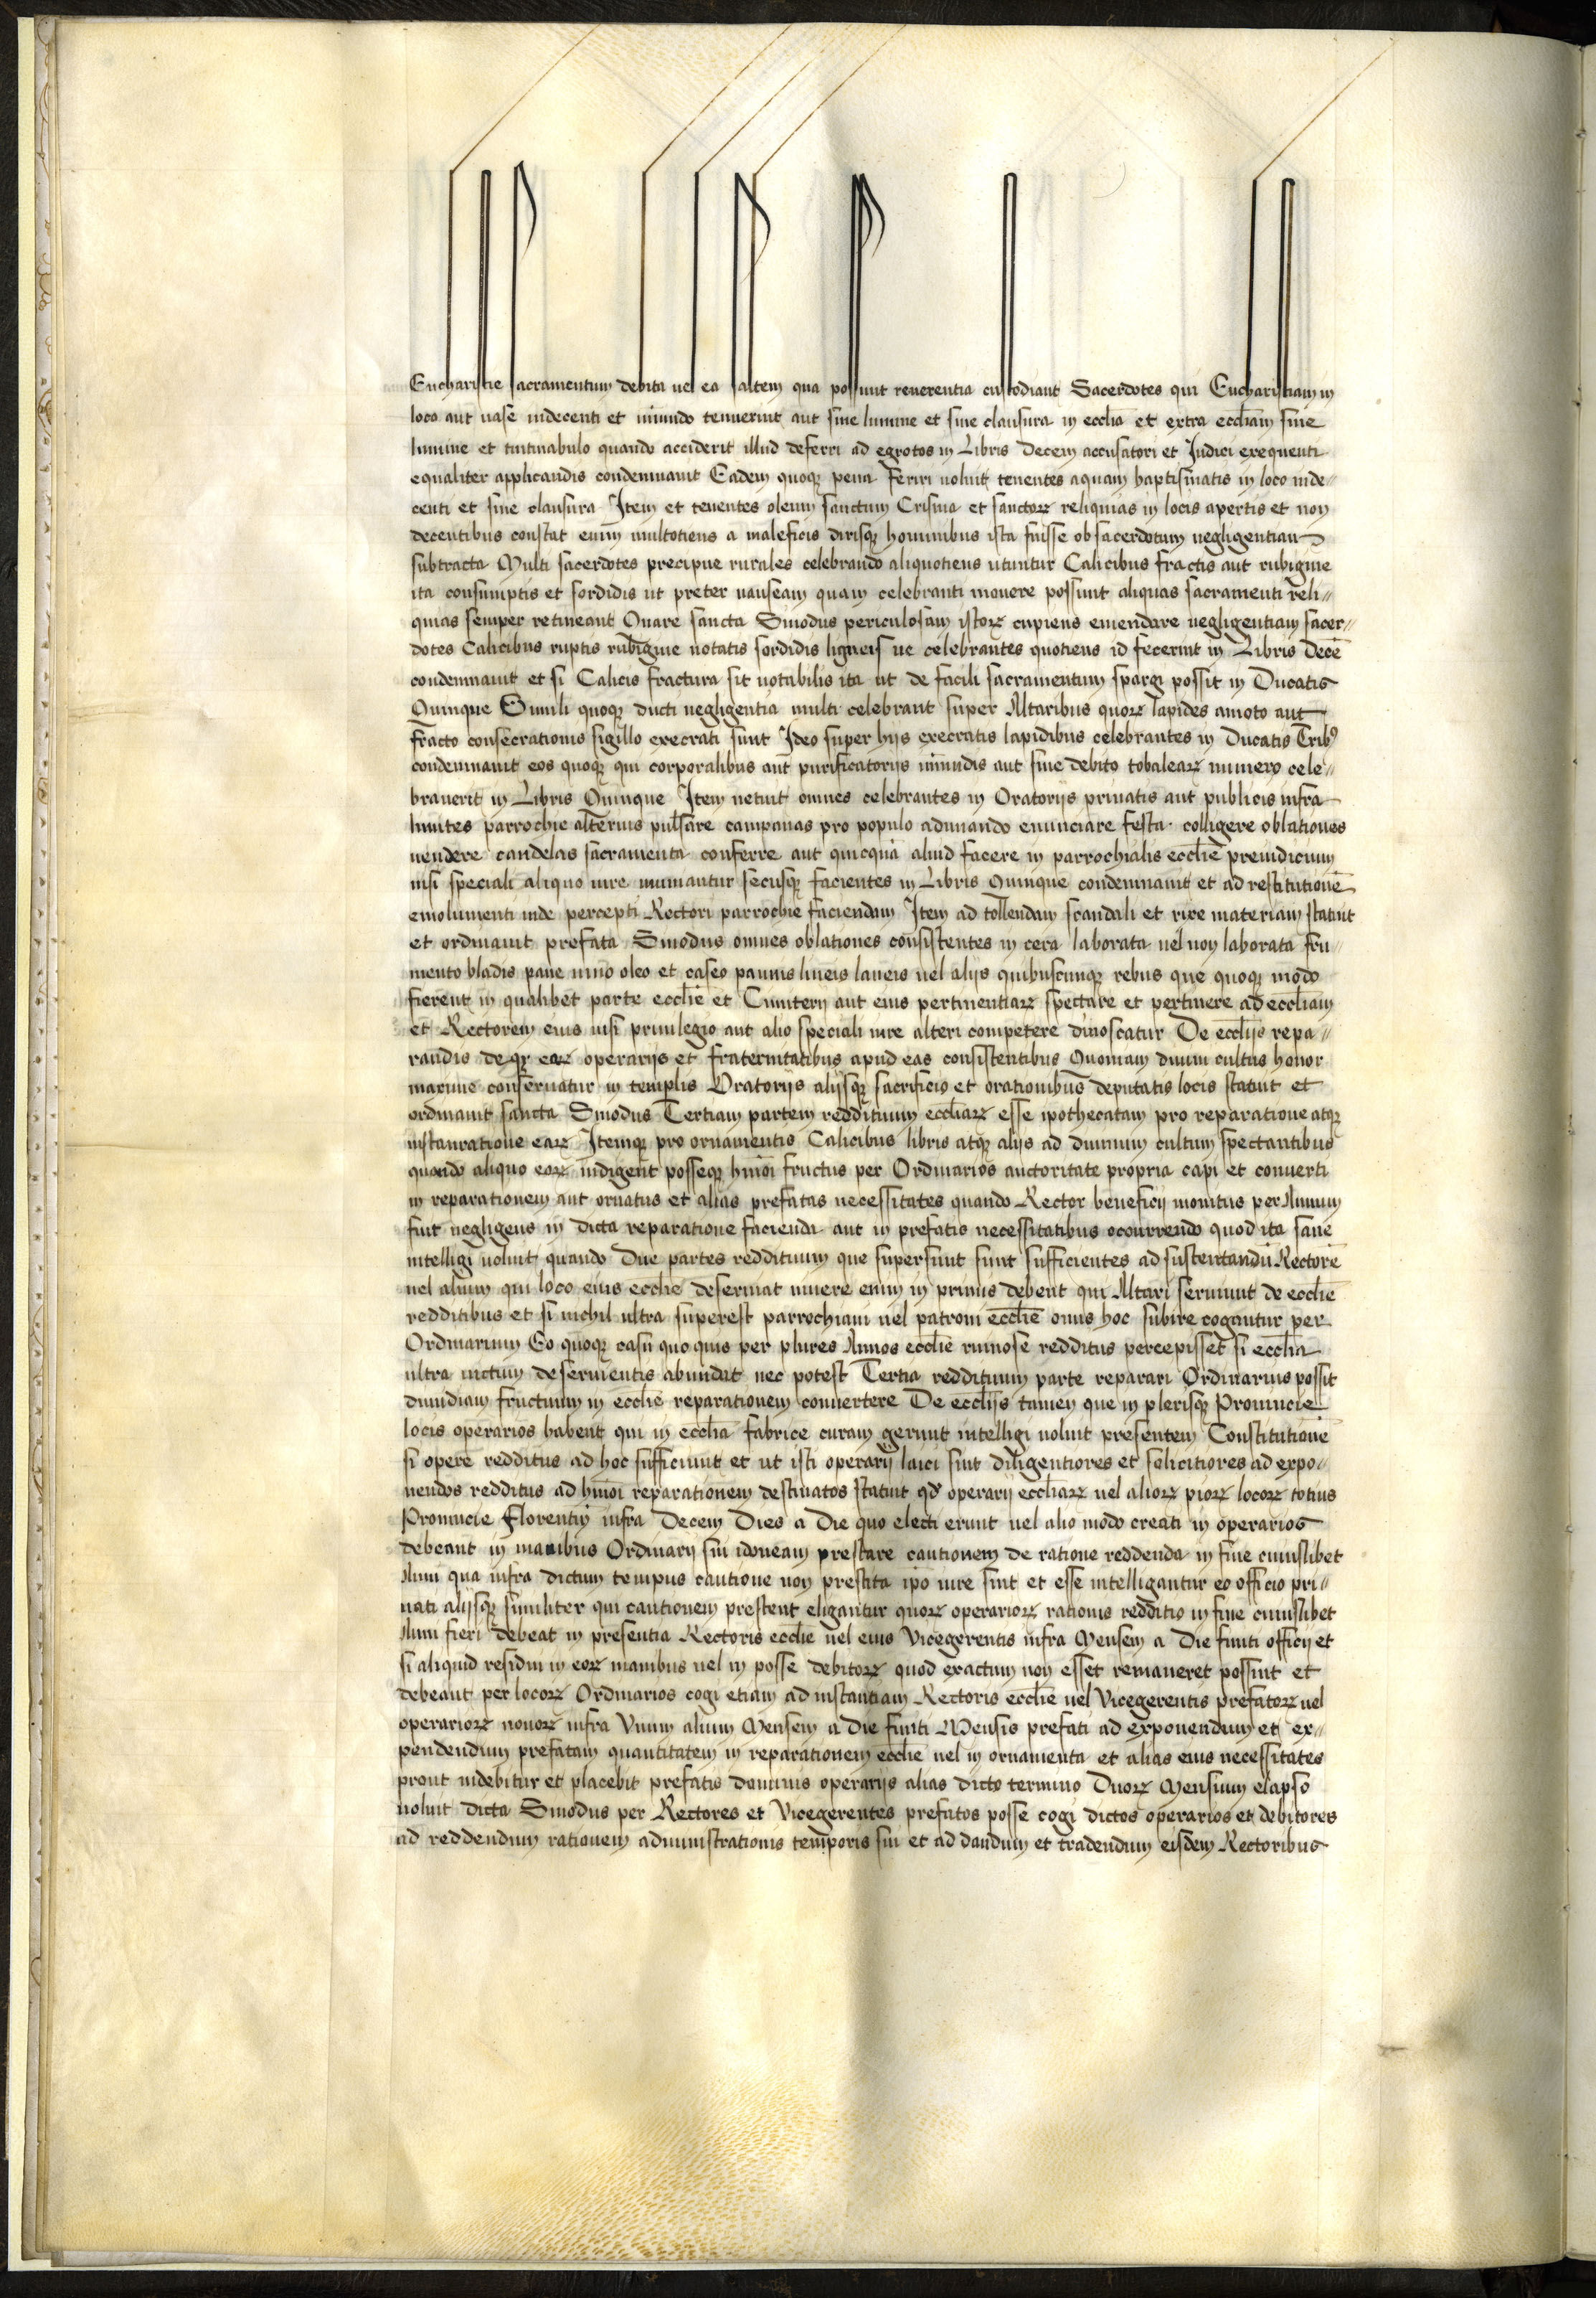 Eucharistie sacramentum debita uel ea saltem qua possunt reuerentia custodiant Sacerdotes qui Eucharistiam in
loco aut uase indecenti et inmundo tenuerint aut sine lumine et sine clausura in ecclia et extra eccliam sine
lumine et tintinabulo quando acciderit illud deferri ad egrotos in Libris Decem accusatori et Iudici exequenti
equaliter applicandis condemnauit Eadem quoqꝫ pena feriri uoluit tenentes aquam baptismatis in loco inde//
centi et sine clausura Item et tenentes oleum sanctum Crisma et sanctoꝝ reliquias in locis apertis et non
decentibus constat enim multotiens a maleficis dirisqꝫ hominibus ista fuisse ob sacerdotum negligentiam
subtracta Multi sacerdotes precipue rurales celebrando aliquotiens utuntur Calicibus fractis aut rubigine
ita consumptis et sordidis ut preter nauseam quam celebranti mouere possunt aliquas sacramenti reli//
quias semper retineant Quare sancta Sinodus periculosam istoꝝ cupiens emendare negligentiam sacer//
dotes Calicibus ruptis rubigine notatis sordidis ligneis ue celebrantes quotiens id fecerint in Libris Decē
condemnauit et si Calicis fractura sit notabilis ita ut de facili sacramentum spargi possit in Ducatis
Quinque Simili quoqꝫ ducti negligentia multi celebrant super Altaribus quoꝝ lapides amoto aut
fracto consecrationis sigillo execrati sunt Ideo super hijs execratis lapidibus celebrantes in Ducatis Tribꝰ
condemnauit eos quoqꝫ qui corporalibus aut purificatorijs inmundis aut sine debito tobaleaꝝ numero cele//
brauerit in Libris Quinque Item uetuit omnes celebrantes in Oratorijs priuatis aut publicis infra
limites parrochie alterius pulsare campanas pro populo adunando enunciare festa colligere oblationes
uendere candelas sacramenta conferre aut quicquā aliud facere in parrochialis ecclie preiudicium
nisi speciali aliquo iure muniantur secusqꝫ facientes in Libris Quinque condemnauit et ad restitutionē
emolumenti inde percepti Rectori parrochie faciendam Item ad tollendam scandali et rixe materiam statuit
et ordinauit prefata Sinodus omnes oblationes consistentes in cera laborata uel non laborata fru//
mento bladis pane uino oleo et caseo pannis lineis laneis uel alijs quibuscunqꝫ rebus que quoqꝫ modo
fierent in qualibet parte ecclie et Cimiterij aut eius pertinentiaꝝ spectare et pertinere ad eccliam
et Rectorem eius nisi priuilegio aut alio speciali iure alteri competere dinoscatur De ecclijs repa//
randis deqꝫ eaꝝ operarijs et fraternitatibus apud eas consistentibus Quoniam diuini cultus honor
maxime conseruatur in templis Oratorijs alijsqꝫ sacrificio et orationibus deputatis locis statuit et
ordinauit sancta Sinodus Tertiam partem reddituum eccliaꝝ esse ipothecatam pro reparatione atqꝫ
instauratione eaꝝ Itemqꝫ pro ornamentis Calicibus libris atqꝫ alijs ad diuinum cultum spectantibus
quando aliquo eoꝝ indigent posseqꝫ hmōi fructus per Ordinarios auctoritate propria capi et conuerti
in reparationem aut ornatus et alias prefatas necessitates quando Rector beneficij monitus per Annum
fuit negligens in dicta reparatione facienda aut in prefatis necessitatibus occurrendo quod ita sane
intelligi uoluit quando Due partes reddituum que supersunt sunt sufficientes ad sustentandū Rectorē
uel alium qui loco eius ecclie deseruiat uiuere enim in primis debent qui Altari seruiunt de ecclie
redditibus et si nichil ultra superest parrochiani uel patroni ecclie onus hoc subire cogantur per
Ordinarium Eo quoqꝫ casu quo quis per plures Annos ecclie ruinose redditus percepisset si ecclia
ultra uictum deseruientis abundat nec potest Tertia reddituum parte reparari Ordinarius possit
dimidiam fructuum in ecclie reparationem conuertere De ecclijs tamen que in plerisqꝫ Prouincie
locis operarios habent qui in ecclia fabrice curam gerunt intelligi uoluit presentem Constitutionē
si opere redditus ad hoc sufficiunt et ut isti operarij laici sint diligentiores et solicitiores ad expo//
nendos redditus ad hmōi reparationem destinatos statuit qd operarij eccliaꝝ uel alioꝝ pioꝝ locoꝝ totius
Prouincie Florentin infra Decem Dies a Die quo electi erunt uel alio modo creati in operarios
debeant in manibus Ordinarij sui idoneam prestare cautionem de ratione reddenda in fine cuiuslibet
Anni qua infra dictum tempus cautione non prestita ipō iure sint et esse intelligantur eo officio pri//
uati alijsqꝫ similiter qui cautionem prestent eligantur quoꝝ operarioꝝ rationis redditio in fine cuiuslibet
Anni fieri debeat in presentia Rectoris ecclie uel eius Vicegerentis infra Mensem a Die finiti officij et
si aliquid residui in eoꝝ manibus uel in posse debitoꝝ quod exactum non esset remaneret possint et
debeant per locoꝝ Ordinarios cogi etiam ad instantiam Rectoris ecclie uel Vicegerentis prefatoꝝ uel
operarioꝝ nouoꝝ infra Vnum alium Mensem a Die finiti Mensis prefati ad exponendum et ex//
pendendum prefatam quantitatem in reparationem ecclie uel in ornamenta et alias eius necessitates
prout uidebitur et placebit prefatis dominis operarijs alias dicto termino Duoꝝ Mensium elapso
uoluit dicta Sinodus per Rectores et Vicegerentes prefatos posse cogi dictos operarios et debitores
ad reddendum rationem administrationis temporis sui et ad dandum et tradendum eisdem Rectoribus